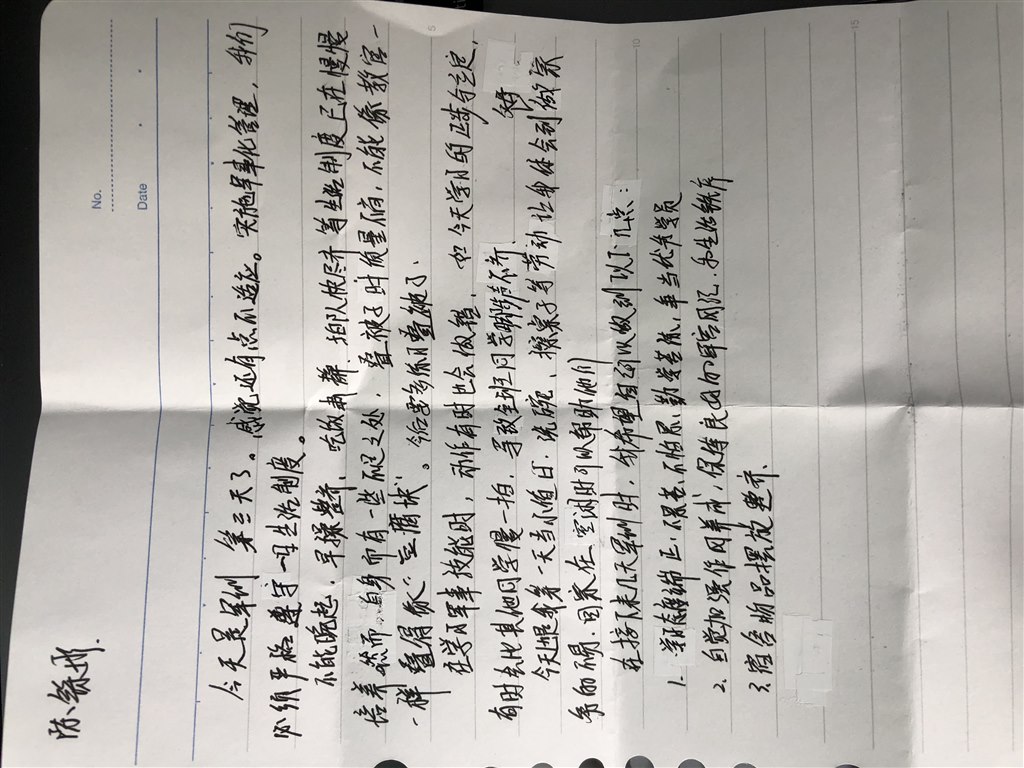 陈
No.
Date
今天是军训第三天了。感觉还有点不适应。实施军事化管理，我们
必须严格遵守一日生活制度。
不能晚起，早操整齐、吃饭肃静、排队快尽齐等生活制度已在慢慢
培养 然而自身而有一些不足之处，叠被子时质量偏，不能像教官一
一样叠得像"豆腐块"。今后要多练习叠被子、
在学习军事技能时，动作有时也会做错、如今天学习的正步行走定
有时会比其他同学慢一拍，导致全班同学踢得不齐
今天也是我第一天当小值日，洗碗、擦桌子等劳动让我体会到做家务
务的不易.回家在空闲时可以帮助他们
在接下来几天军训中，我希望自己可以做到以下几点：
1. 学习态度端正,不畏苦、不怕累、勤劳苦练,争当优秀学员
2. 自觉加强作风养成，保持良好的军容风纪.和生活秩序
3.宿舍物品摆放整齐、
5
10
15